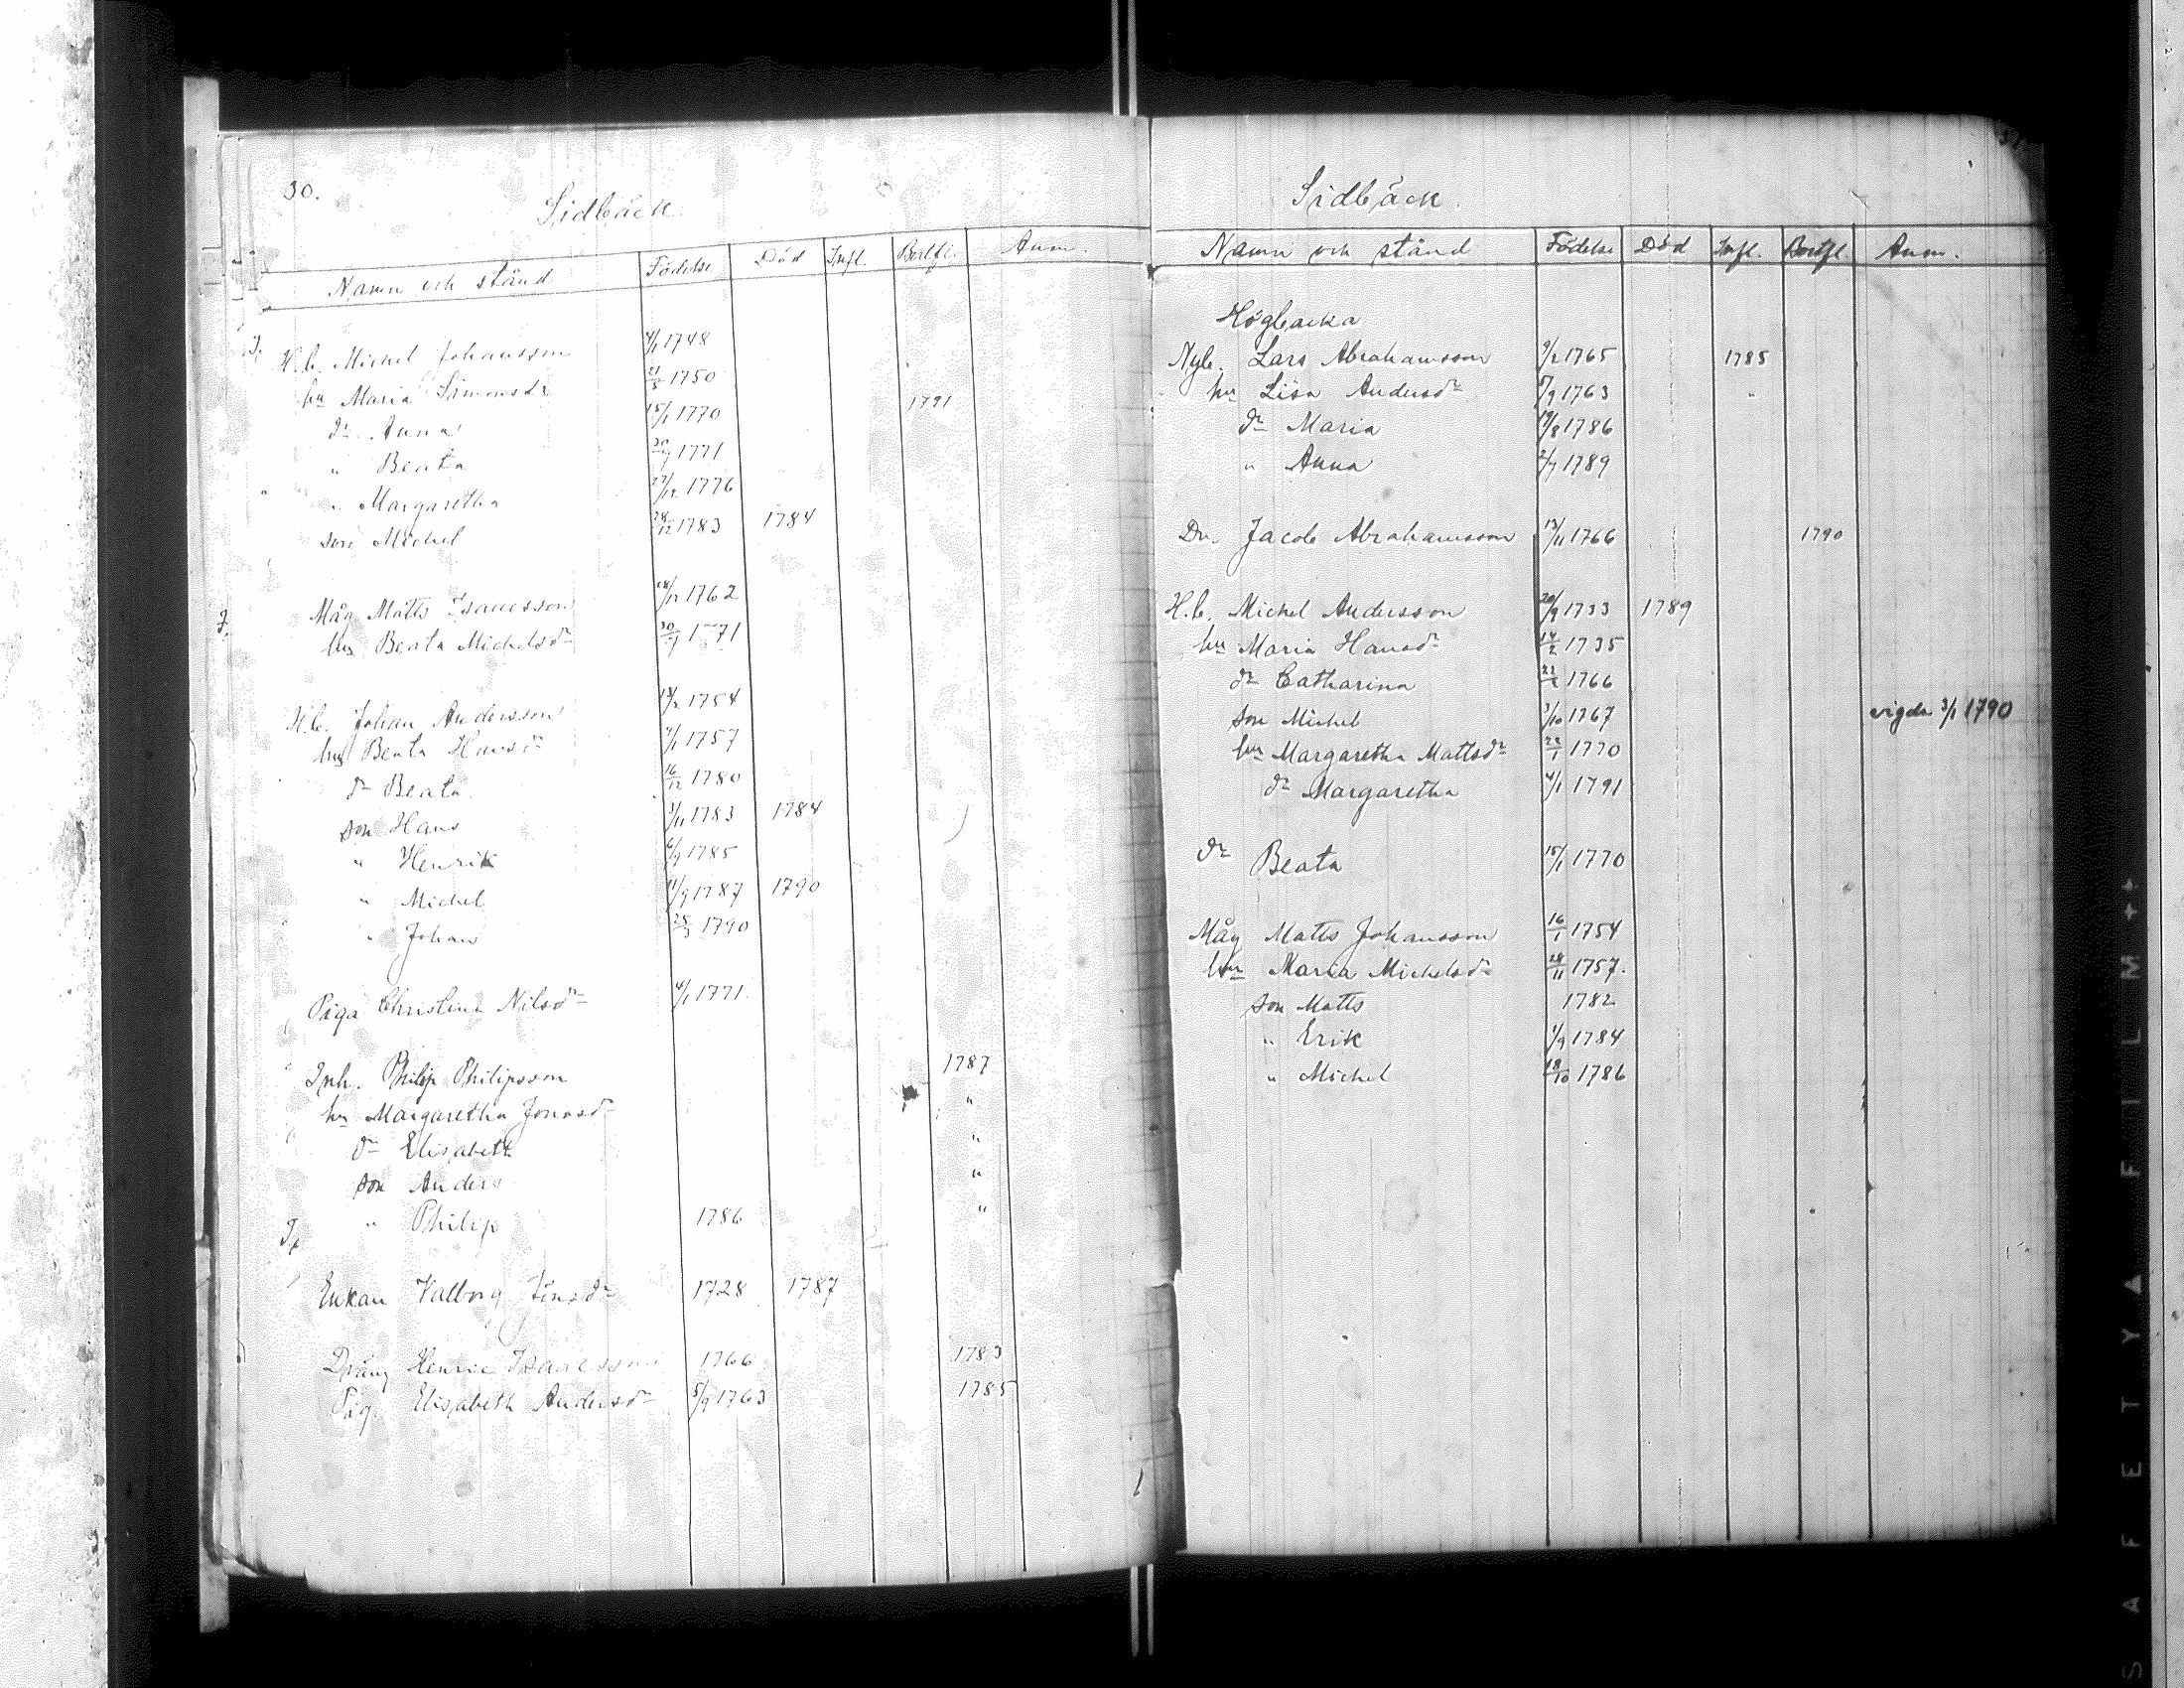 30.
Sidbäck.
Namn och stånd Födelse Död Infl. Bortfl. Anm.
H.b. Michel Johansson 4/1 1748
hu Maria Simonsdr 21/5 1750
dr Anna 15/1 1770 1791
" Beata 30/7 1771
" Margaretha 17/12 1776
son Michel 28/12 1783 1784
Måg Matts Isacsson 1762
hu Beata Michelsdr 30/7 1771
H.b. Johan Andersson 13/2 1754
hu Beata Hansdr 1757
dr Beata 16/12 1780
son Hans 3/11 1783 1784
" Henrik 6/7 1785
" Michel 11/9 1787 1790
" Johan 25/3 1790
Piga Christina Nilsdr 4/1 1771.
Inh. Philip Philipsson 1787
hu Margaretha Jonasdr "
dr Elisabeth "
son Anders "
" Philip 1786 "
Enkan Valborg Jönsdr 1728 1787
Dräng Henric Isacsson 1766 1783
Pig. Elisabeth Andersdr 5/9 1763 1785
Sidbäck.
Namn och stånd Födelse Död Infl. Bortfl. Anm.
Högbacka
Nyb. Lars Abrahamsson 9/2 1765 1785
hu Lisa Andersdr 1763 "
dr Maria 19/8 1786
" Anna 2/7 1789
Dr. Jacob Abrahamsson 13/11 1766 1790
H.b. Michel Andersson 20/9 1733 1789
hu Maria Hansdr 14/2 1735
dr Catharina 1766
son Michel 3/10 1767 vigda 3/1 1790
hu Margaretha Mattsdr 22/1 1770
dr Margaretha 4/1 1791
dr Beata 15/1 1770
Måg Matts Johansson 16/1 1754
hu Maria Michelsdr 28/11 1757.
son Matts 1782
" Erik 1/9 1784
" Michel 18/10 1786
SAFETY▲FILM++